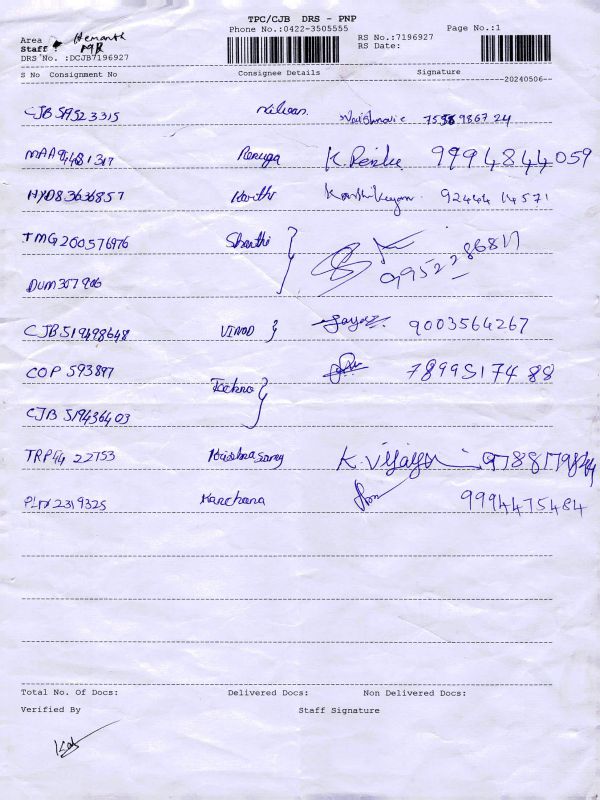 TPC/CJB DRS - PNP
Phone No.:0422-3505555
Page No.:1
Area : Hemanth
Staff : MR
RS No.:7196927
RS Date:
DRS No. :DCJB7196927
S No Consignment No Consignee Details Signature
20240506
CJB 519523315 75 9867 24
MAA 94481317 Renuga 9994844059
HYD83636857 Karthi Karthikeyan 92444 14571
TMG200576976 Shanthi 9952286817
DUM307906
CJB519498648 VINOD 9003564267
COP 593897 Techno 7899517488
CJB 519436403
TRP44 22753 Krishnasamy K. Vijaya
2319325 Kanchana 9994475484
Total No. Of Docs: Delivered Docs: Non Delivered Docs:
Verified By Staff Signature